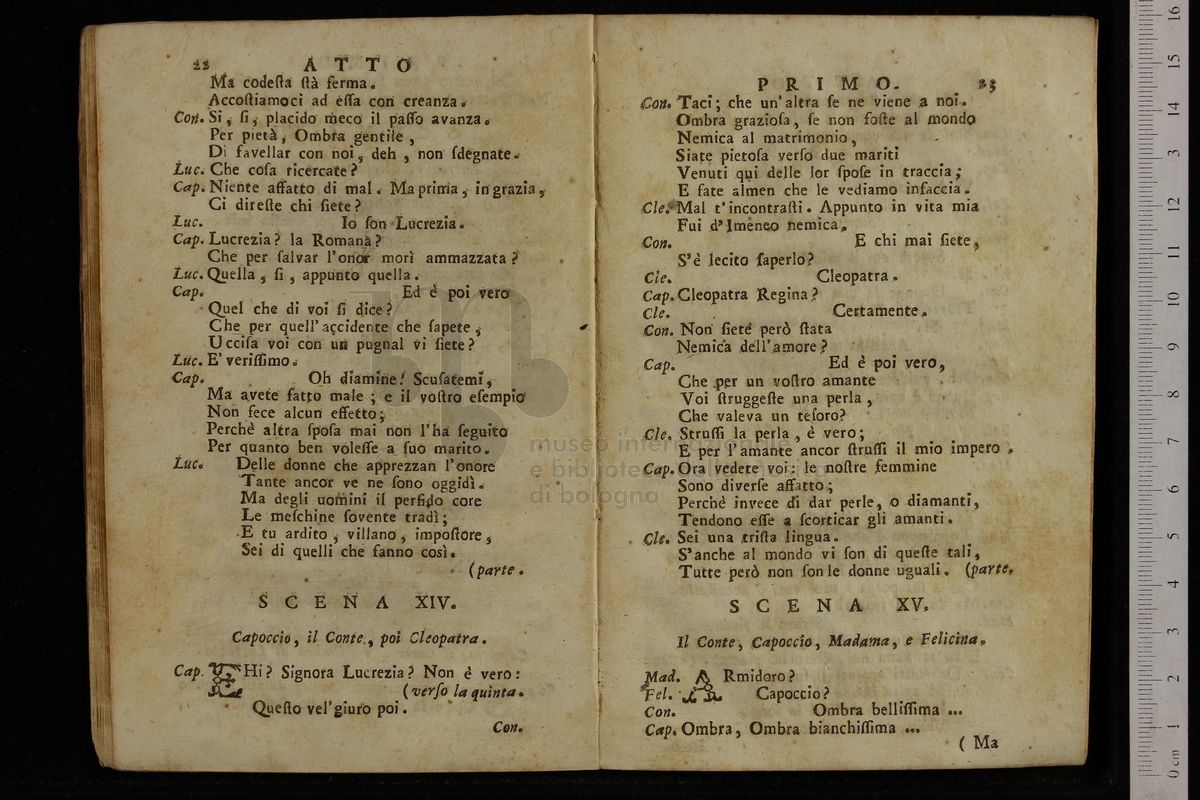 22 ATTO
Ma codeſta ſtà ferma.
Accoſtiamoci ad eſſa con creanza.
Con. Si, ſi, placido meco il paſſo avanza.
Per pietà, Ombra gentile,
Di favellar con noi, deh, non ſdegnate.
Luc. Che coſa ricercate?
Cap. Niente affatto di mal. Ma prima, in grazia,
Ci direſte chi ſiete?
Luc. Io ſon Lucrezia.
Cap. Lucrezia? la Romana?
Che per ſalvar l'onor morì ammazzata?
Luc. Quella, ſi, appunto quella.
Cap. Ed è poi vero
Quel che di voi ſi dice?
Che per quell'accidente che ſapete,
Ucciſa voi con un pugnal vi ſiete?
Luc. E' veriſſimo.
Cap. Oh diamine! Scuſatemi,
Ma avete fatto male; e il voſtro eſempio
Non fece alcun effetto;
Perchè altra ſpoſa mai non l'ha ſeguito
Per quanto ben voleſſe a ſuo marito.
Luc. Delle donne che apprezzan l'onore
Tante ancor ve ne ſono oggidì.
Ma degli uomini il perfido core
Le meſchine ſovente tradì;
E tu ardito, villano, impoſtore,
Sei di quelli che fanno così.
(parte.
SCENA XIV.
Capoccio, il Conte, poi Cleopatra.
Cap. EHi? Signora Lucrezia? Non è vero:
(verſo la quinta.
Queſto vel'giuro poi.
Con.
PRIMO. 23
Con. Taci; che un'altra ſe ne viene a noi.
Ombra grazioſa, ſe non foſte al mondo
Nemica al matrimonio,
Siate pietoſa verſo due mariti
Venuti qui delle lor ſpoſe in traccia;
E fate almen che le vediamo infaccia.
Cle. Mal t'incontraſti. Appunto in vita mia
Fui d'Imeneo nemica.
Con. E chi mai ſiete,
S'è lecito ſaperlo?
Cle. Cleopatra.
Cap. Cleopatra Regina?
Cle. Certamente.
Con. Non ſiete però ſtata
Nemica dell'amore?
Cap. Ed è poi vero,
Che per un voſtro amante
Voi ſtruggeſte una perla,
Che valeva un teſoro?
Cle. Struſſi la perla, è vero;
E per l'amante ancor ſtruſſi il mio impero.
Cap. Ora vedete voi: le noſtre femmine
Sono diverſe affatto;
Perchè invece di dar perle, o diamanti,
Tendono eſſe a ſcorticar gli amanti.
Cle. Sei una triſta lingua.
S'anche al mondo vi ſon di queſte tali,
Tutte però non ſon le donne uguali. (parte.
SCENA XV.
Il Conte, Capoccio, Madama, e Felicina.
Mad. ARmidoro?
Fel. Capoccio?
Con. Ombra belliſſima ...
Cap. Ombra, Ombra bianchiſſima ...
( Ma
museo internazionale
e biblioteca della musica
di bologna
0 cm 1 2 3 4 5 6 7 8 9 10 11 12 13 14 15 16